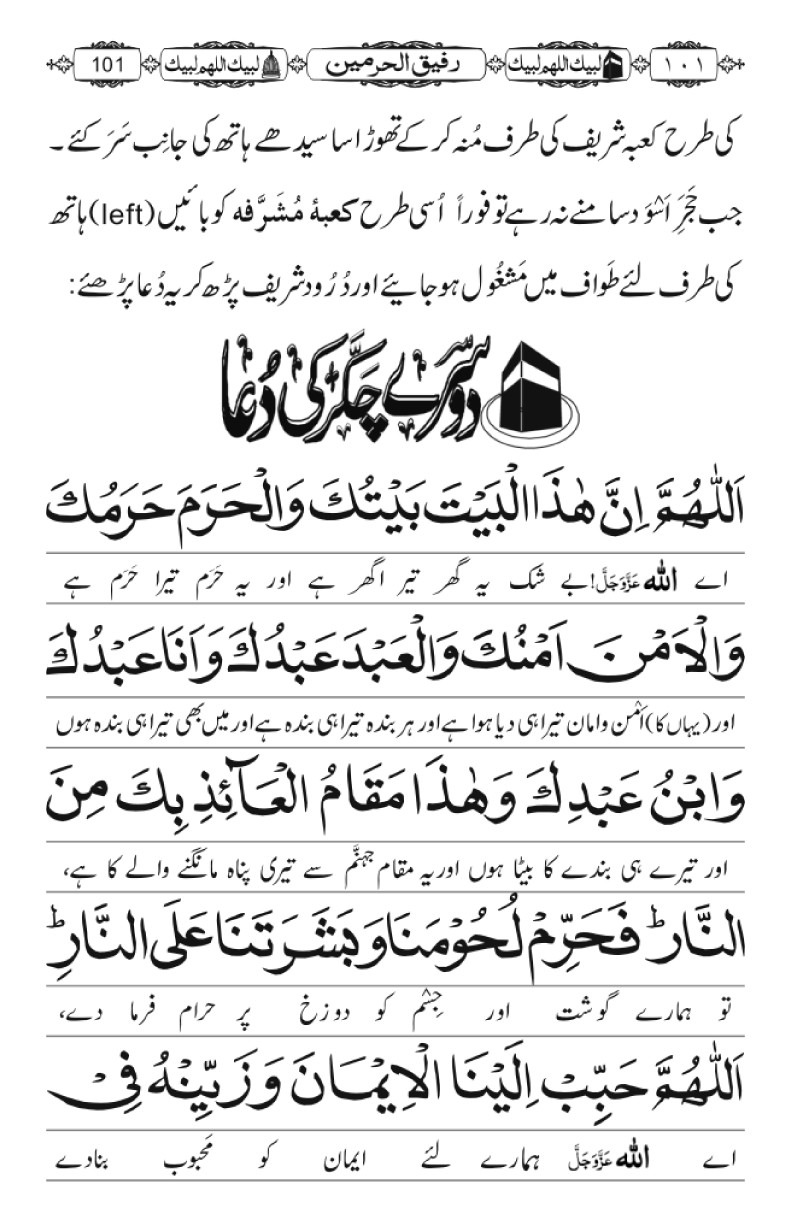 ۱۰۱ لبیك اللھم لبیك رفیق الحرمین لبیك اللھم لبیك 101
کی طرح کعبہ شریف کی طرف مُنہ کر کے تھوڑا سا سیدھے ہاتھ کی جانِب سَرَ کئے ۔
جب حَجَرِ اَسْوَد سامنے نہ رہے تو فوراً اُسی طرح کعبۂ مُشَرَّفہ کو بائیں (left) ہاتھ
کی طرف لئے طَواف میں مَشغُول ہو جایئے اور دُرُود شریف پڑھ کر یہ دُعا پڑھئے:
دوسرے چکّر کی دُعا
اَللّٰهُمَّ اِنَّ هٰذَا الْبَيْتَ بَيْتُكَ وَالْحَرَمَ حَرَمُكَ
اے الله عَزَّوَجَلَّ! بے شک یہ گھر تیرا گھر ہے اور یہ حَرَم تیرا حَرَم ہے
وَالْاَمْنَ اَمْنُكَ وَالْعَبْدَ عَبْدُكَ وَاَنَا عَبْدُكَ
اور (یہاں کا) اَمْن وامان تیرا ہی دیا ہوا ہے اور ہر بندہ تیرا ہی بندہ ہے اور میں بھی تیرا ہی بندہ ہوں
وَابْنُ عَبْدِكَ وَهٰذَا مَقَامُ الْعَآئِذِ بِكَ مِنَ
اور تیرے ہی بندے کا بیٹا ہوں اور یہ مقام جہنَّم سے تیری پناہ مانگنے والے کا ہے،
النَّارِ ؕ فَحَرِّمْ لُحُوْمَنَا وَبَشَرَتَنَا عَلَى النَّارِ ؕ
تو ہمارے گوشت اور جِسْم کو دوزخ پر حرام فرما دے،
اَللّٰهُمَّ حَبِّبْ اِلَيْنَا الْاِيْمَانَ وَزَيِّنْهُ فِيْ
اے الله عَزَّوَجَلَّ ہمارے لئے ایمان کو مَحبوب بنادے